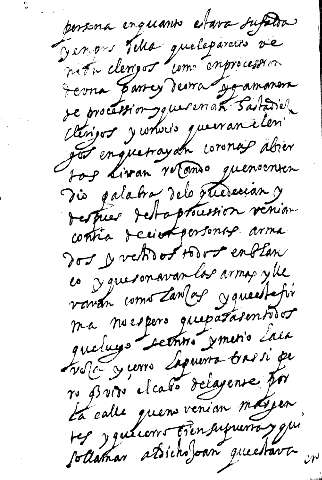 persona en quanto estava su falda
y en pos della que le parecio ve
nian clerigos como en procession
de una parte y de otra y a manera
de procession y que serian hasta diez
clerigos y conocio que eran cleri
gos en que trayan coronas abier
tas e ivan rezando que no enten
dio palabra de lo que decian y
despues desta procession venian
contia de cien personas arma
dos y vestidos todos en blan
co y que sonavan las armas y lle
vavan como lanzas y que este fir
ma no espero que pasasen todos
que luego se entro y metio la ca
veza y cerro la puerta tras si pe
ro q vido el cabo de la gente por
la calle que no venian mas jen
tes y que cerro bien su puerta y qui
so llamar al dicho Joan que estava